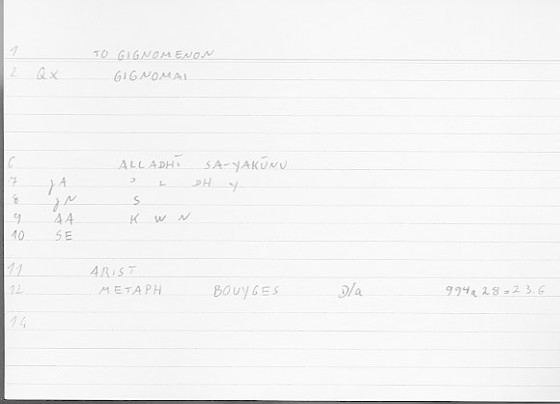 1 TO GIGNOMENON
2 Qx GIGNOMAI
6 ALLADHĪ SA-YAKŪNU
7 gA ' L DH Y
8 gN S
9 AA K W N
10 SE
11 ARIST
12 METAPH BOUYGES D/a 994a28=23.6
14